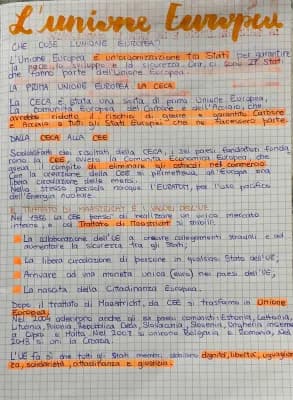 L'unione Europea
CHE COS'È L'UNIONE EUROPEA?
L'Unione Europea è un'organizzazione tra Stati per garantire
la pace, lo sviluppo e la sicurezza. Ora, ci sono 27 Stati
che fanno parte dell'Unione Europea.
LA PRIMA UNIONE EUROPEA: LA CECA
La CECA è stata una sorta di prima Unione Europea.
La comunità Europea del Carbone e dell'Acciaio, che
avrebbe ridotto il rischio di guerre e garantito Carbone
e Acciaio a tutti gli Stati Europei che ne facessero parte.
DALLA CECA ALLA CEE
Soddisfatti dei risultati della CECA, i sei paesi fondatori fonda
rono la CEE, ovvero la Comunità Economica Europea, che
aveva il compito di eliminare gli ostacoli nel commercio.
Con la creazione della CEE si permetteva all'Europa una
libera circolazione delle merci.
Nello stesso periodo nacque l'EURATOM, per l'uso pacifico
dell'Energia nucleare.
IL TRATTATO DI MAASTRICHT E I VALORI DELL'UE
Nel 1986 la CEE pensò di realizzare un unico mercato
interno, e col Trattato di Maastricht si stabilì:
La collaborazione dell'UE a creare collegamenti stradali e ad
aumentare la sicurezza tra gli Stati;
La libera circolazione di persone in qualsiasi Stato dell'UE;
Arrivare ad una moneta unica (euro) nei paesi dell'UE;
La nascita della Cittadinanza Europea.
Dopo il trattato di Maastricht, da CEE si trasforma in Unione
Europea.
Nel 2004 aderirono anche gli ex paesi comunisti: Estonia, Lettonia,
Lituania, Polonia, Repubblica Ceca, Slovacchia, Slovenia, Ungheria insieme
a Cipro e Malta. Nel 2007 si unirono Bulgaria e Romania, Nel
2013 si unì la Croazia.
L'UE fa sì che tutti gli Stati membri abbiano dignità, libertà, uguaglian
za, solidarietà, cittadinanza e giustizia.